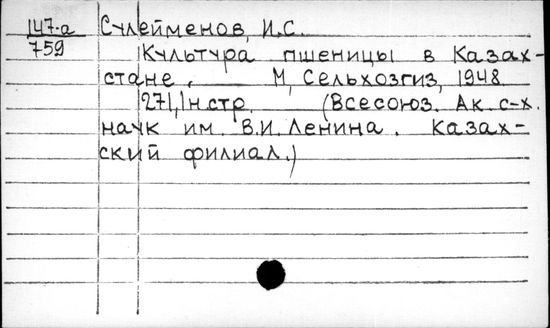 147-а Сулейменов, И.С.
759 Культура пшеницы в Казах-
стане. М, Сельхозгиз, 1948
271, 1н.стр. (Всесоюз. Ак. с-х.
наук им. В.И. Ленина. Казах-
ский филиал.)